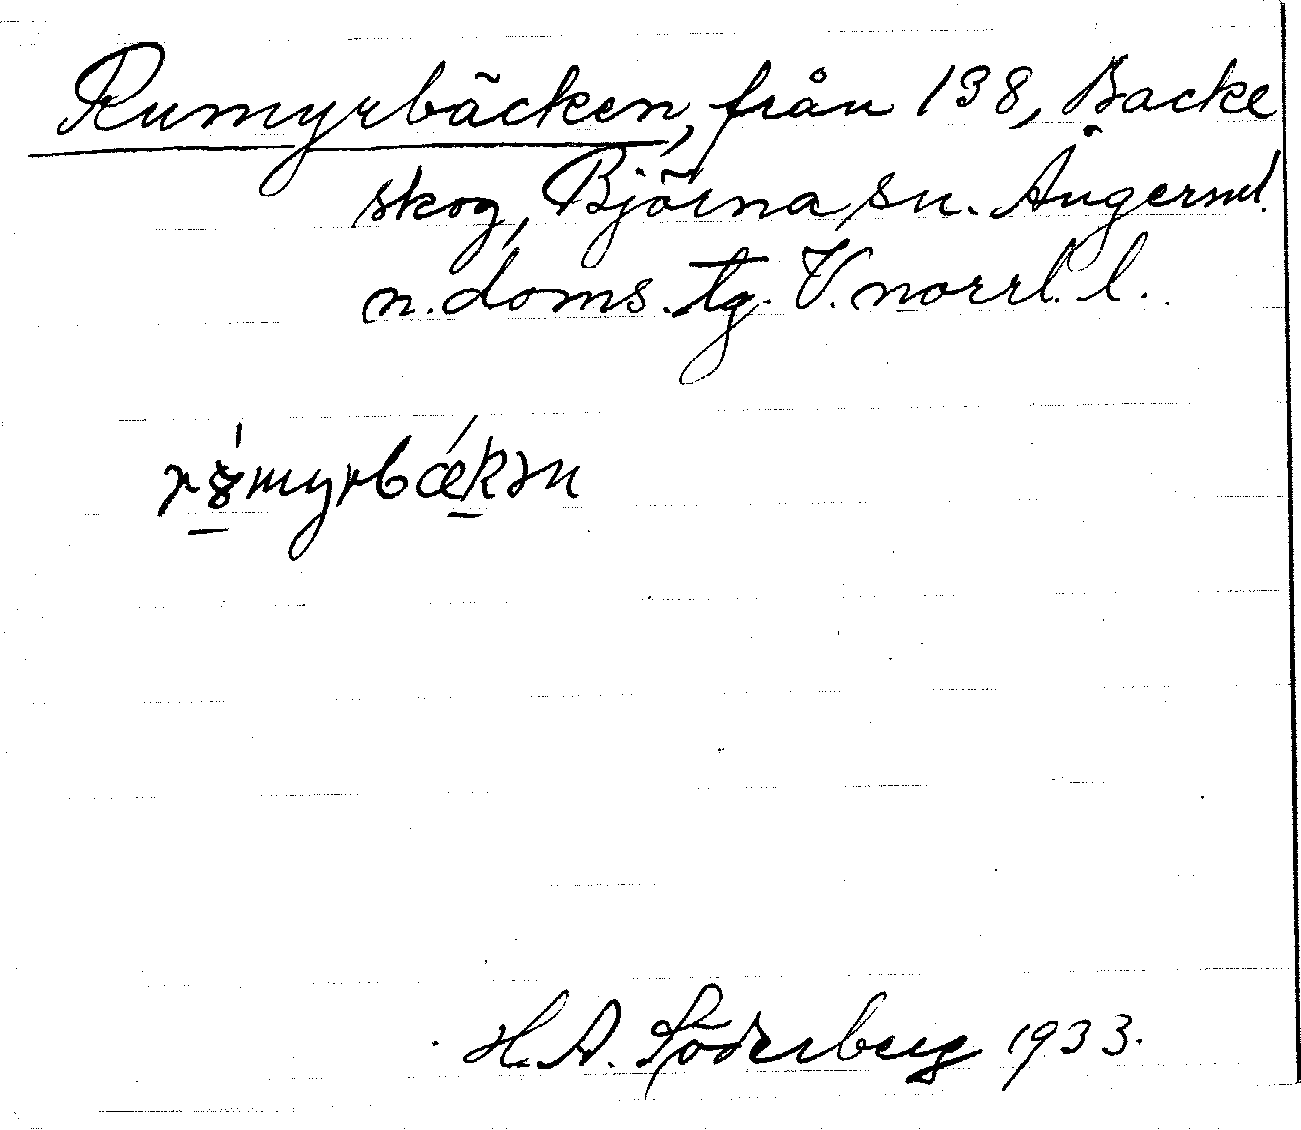 Rumyrbäcken, från 138, Backe
skog, Björna sn. Ångerml.
n. doms. tg. V. norrl. l.
rȣ́myrbǽkən
H. A. Söderberg 1933.